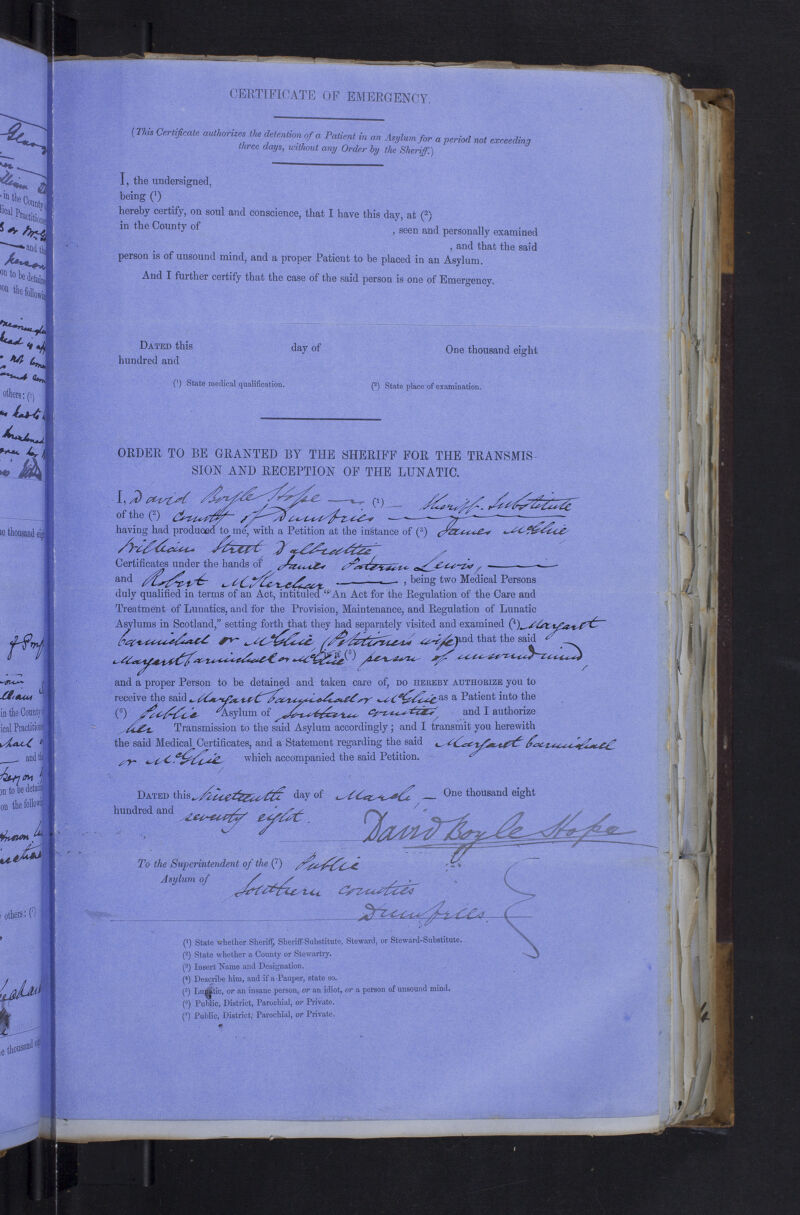 CERTIFICATE OF EMERGENCY.
(This Certificate authorizes the detention of a Patient in an Asylum for a period not exceeding
three days, without any Order by the Sheriff.)
I, the undersigned,
being (¹)
hereby certify, on soul and conscience, that I have this day, at (²)
in the County of , seen and personally examined
, and that the said
person is of unsound mind, and a proper Patient to be placed in an Asylum.
And I further certify that the case of the said person is one of Emergency.
DATED this day of One thousand eight
hundred and
(¹) State medical qualification. (²) State place of examination.
ORDER TO BE GRANTED BY THE SHERIFF FOR THE TRANSMIS-
SION AND RECEPTION OF THE LUNATIC.
I, David Boyle Hope — (¹) — Sheriff-Substitute
of the (²) County of Dumfries —
having had produced to me, with a Petition at the instance of (³) James McGhie
Williams Street Dalbeattie
Certificates under the hands of James Paterson Lewis, —
and Robert McKerchar — , being two Medical Persons
duly qualified in terms of an Act, intituled “An Act for the Regulation of the Care and
Treatment of Lunatics, and for the Provision, Maintenance, and Regulation of Lunatic
Asylums in Scotland,” setting forth that they had separately visited and examined (⁴) Margaret
Carmichael or McGhie (Petitioner's wife) and that the said
Margaret Carmichael or McGhie is a (⁵) person of unsound mind,
and a proper Person to be detained and taken care of, DO HEREBY AUTHORIZE you to
receive the said Margaret Carmichael or McGhie as a Patient into the
(⁶) Public Asylum of Southern Counties, and I authorize
her Transmission to the said Asylum accordingly; and I transmit you herewith
the said Medical Certificates, and a Statement regarding the said Margaret Carmichael
or McGhie, which accompanied the said Petition.
DATED this Nineteenth day of March, — One thousand eight
hundred and seventy eight.
David Boyle Hope
To the Superintendent of the (⁷) Public
Asylum of Southern Counties
Dumfries.
(¹) State whether Sheriff, Sheriff-Substitute, Steward, or Steward-Substitute.
(²) State whether a County or Stewartry.
(³) Insert Name and Designation.
(⁴) Describe him, and if a Pauper, state so.
(⁵) Lunatic, or an insane person, or an idiot, or a person of unsound mind.
(⁶) Public, District, Parochial, or Private.
(⁷) Public, District, Parochial, or Private.